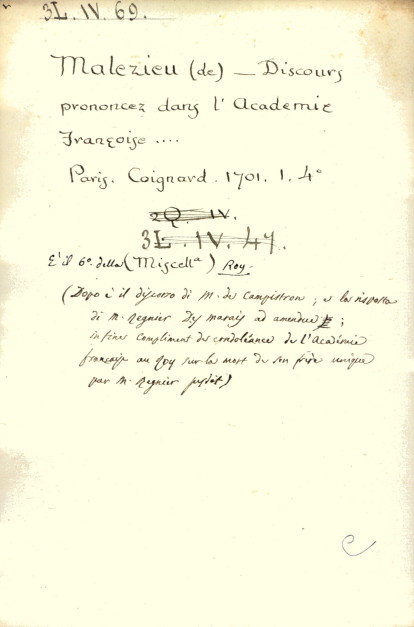 3L. IV. 69.
Malezieu (de) — Discours
prononcez dans l' Academie
Françoise ....
Paris. Coignard. 1701. 1. 4°
2Q. IV.
3L. IV. 47.
E' il 6° della (Miscellª) Roy.
(Dopo è il discorso di M. de Campistron; e la risposta
di M. Regnier Des marais ad amendue;
in fine: Compliment de condoléance de l'Académie
françoise au Roy sur la mort de son frère unique
par M. Regnier susdet)